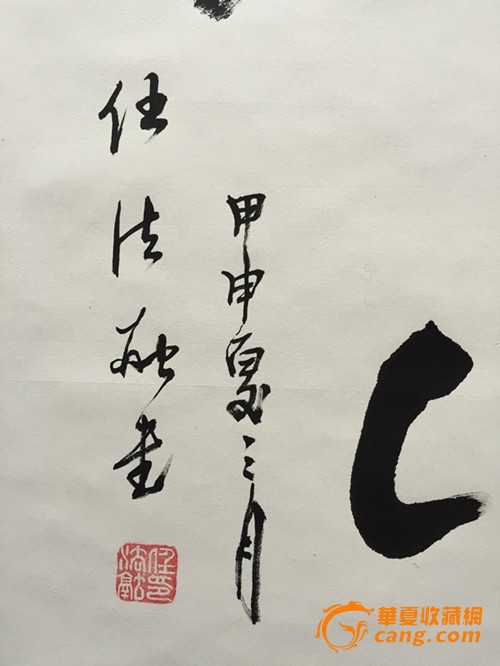 甲申夏三月
任法融书
任法融印
華夏收藏網
cang.com